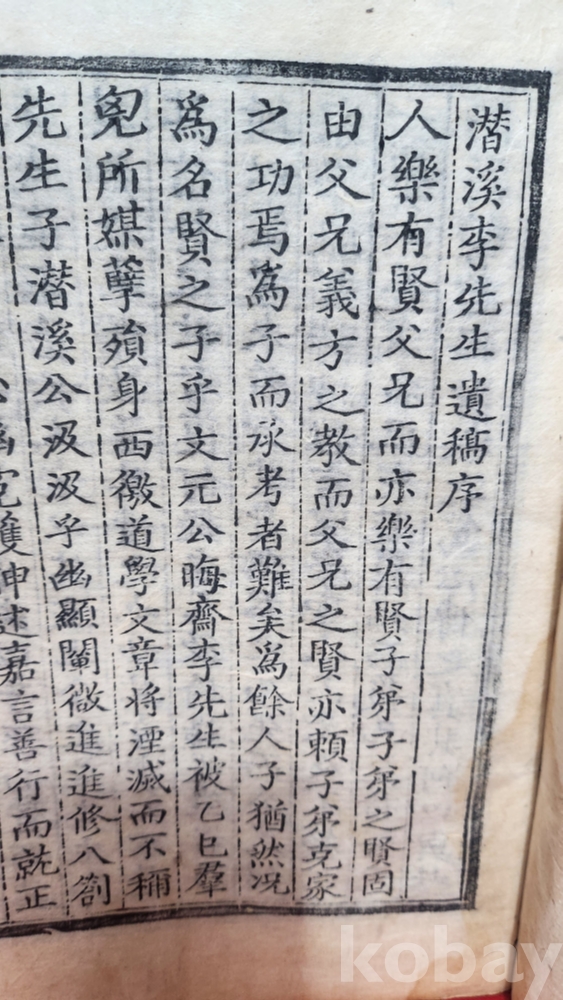 潜溪李先生遺稿序
人樂有賢父兄而亦樂有賢子弟子弟之賢固
由父兄義方之教而父兄之賢亦賴子弟克家
之功焉爲子而承考者難矣爲餘人子猶然况
爲名賢之子乎文元公晦齋李先生被乙巳羣
兇所媒孽殞身西徼道學文章將湮滅而不稱
先生子潜溪公汲汲乎幽顯闡微進進修八劄
冤雙伸述嘉言善行而就正
kobay